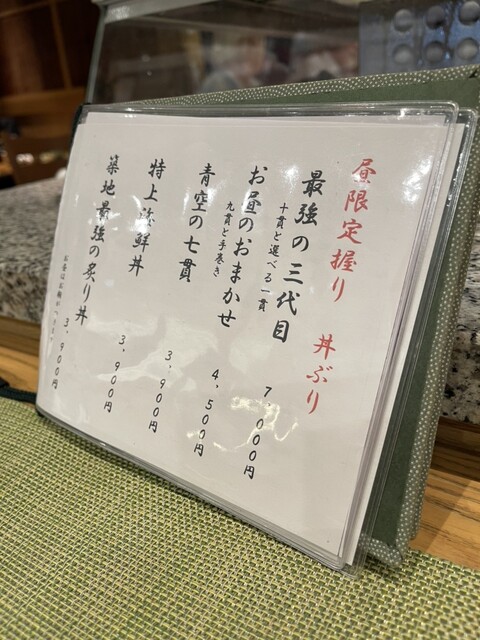 昼限定握り 丼ぶり
最強の三代目 7,000円
十貫と選べる一貫
お昼のおまかせ 4,500円
九貫と手巻き
青空の七貫 3,900円
特上海鮮丼 3,900円
築地最強の炙り丼 3,900円
お昼はお椀が